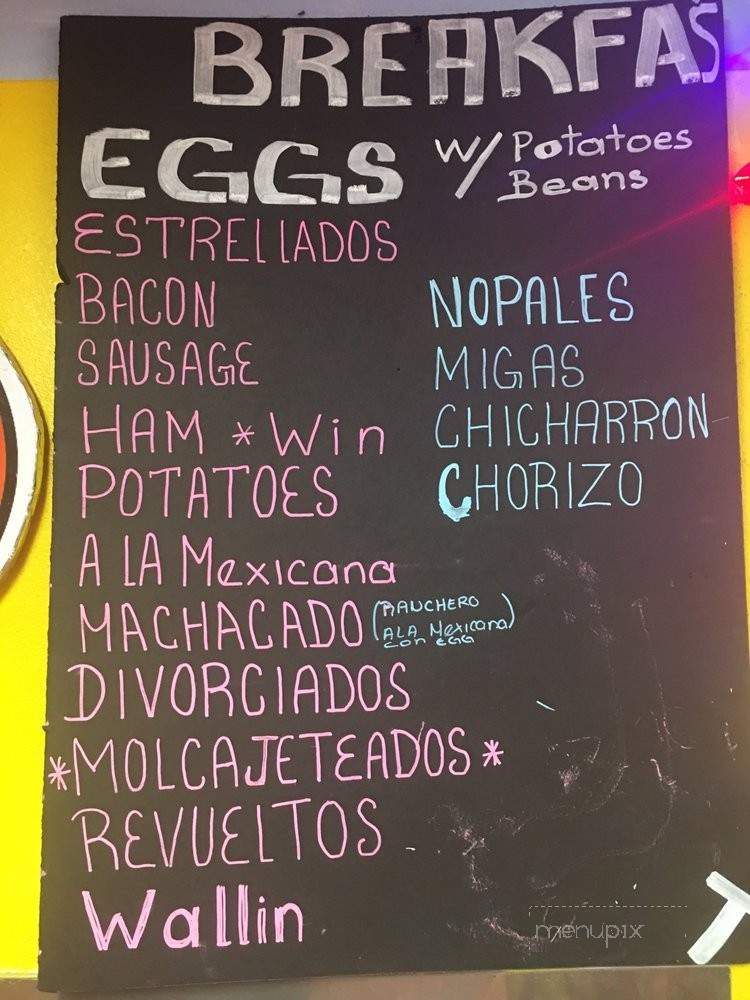 BREAKFAS
EGGS w/ Potatoes
Beans
ESTRELLADOS
BACON
SAUSAGE
HAM *Win
POTATOES
A LA Mexicana
MACHACADO (RANCHERO
A LA Mexicana)
CON EGG
DIVORCIADOS
*MOLCAJETEADOS*
REVUELTOS
Wallin
NOPALES
MIGAS
CHICHARRON
CHORIZO
menupix